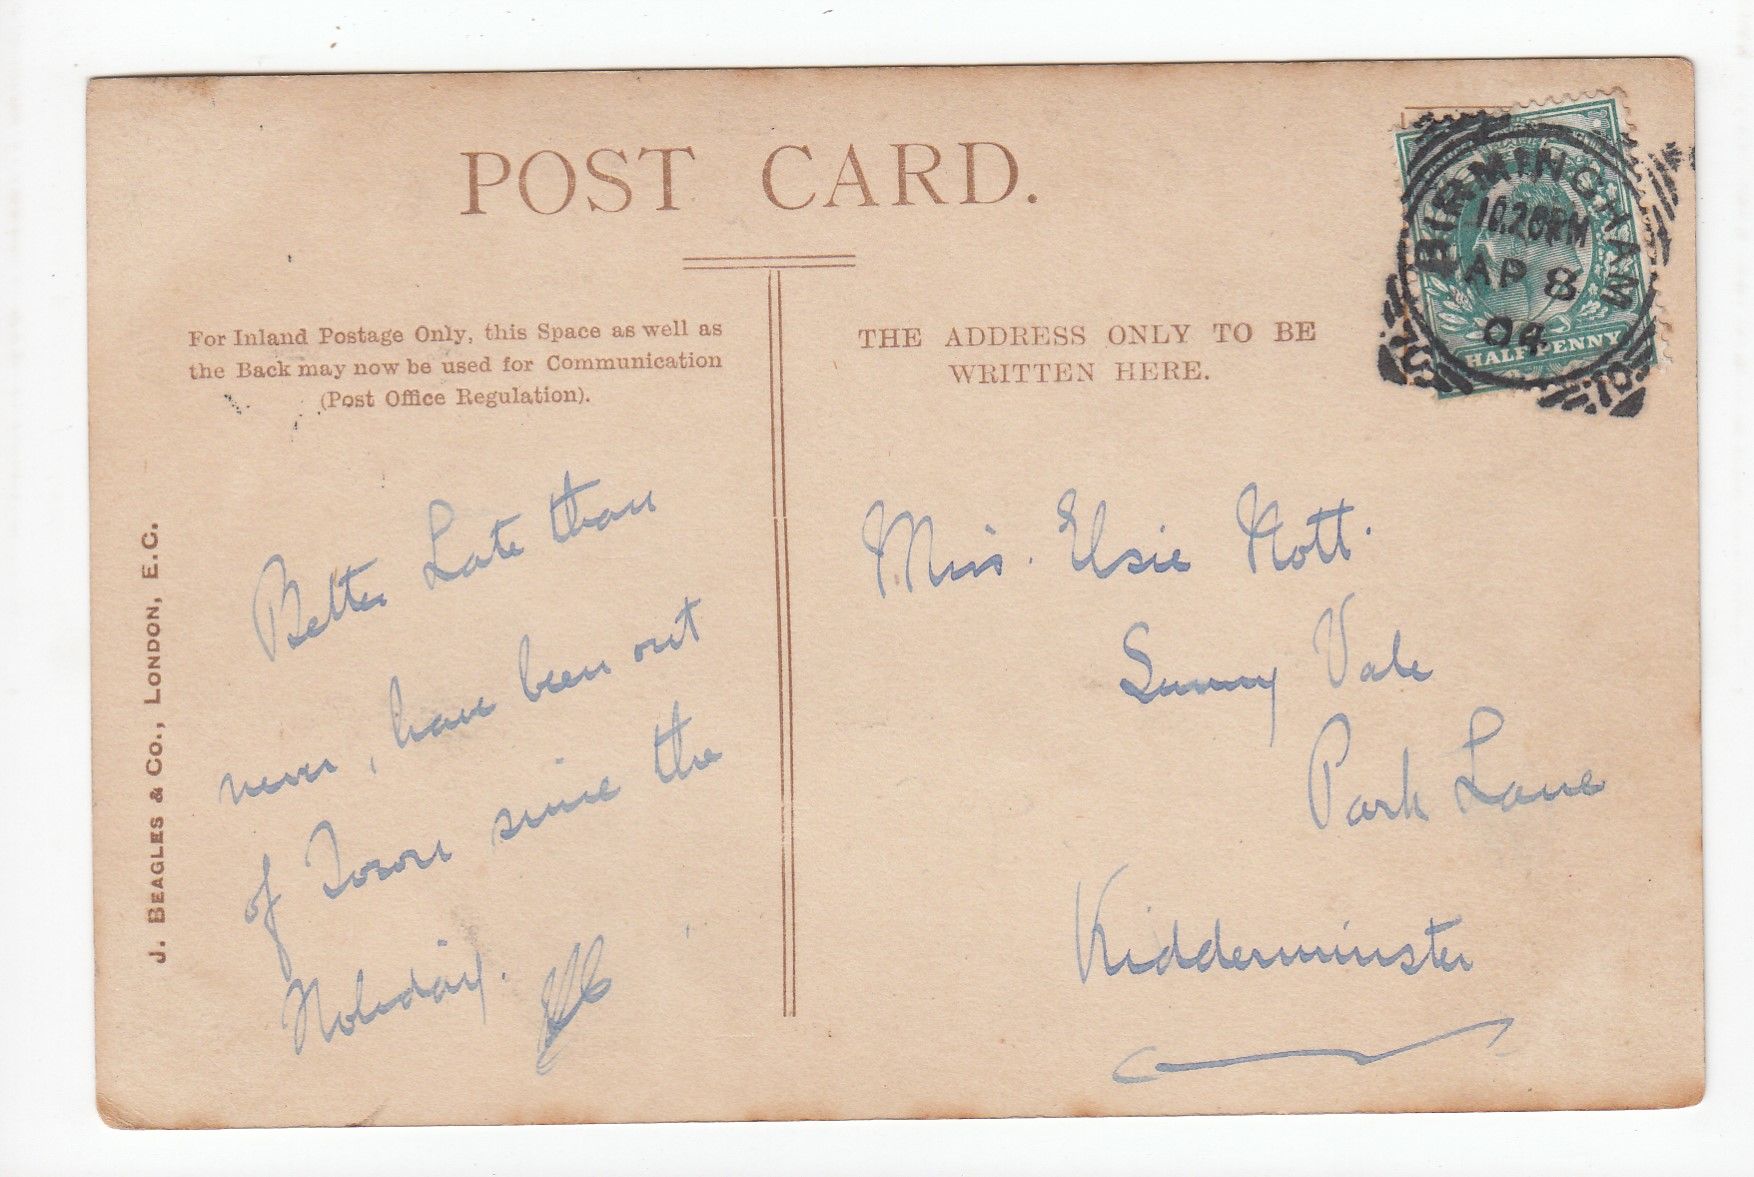 POST CARD.
For Inland Postage Only, this Space as well as
the Back may now be used for Communication
(Post Office Regulation).
THE ADDRESS ONLY TO BE
WRITTEN HERE.
BIRMINGHAM
10.20PM
AP 8
04
HALFPENNY
J. BEAGLES & CO., LONDON, E.C.
Better Late than
never, have been out
of Town since the
Holiday.
Miss. Elsie Nott.
Sunny Vale
Park Lane
Kidderminster